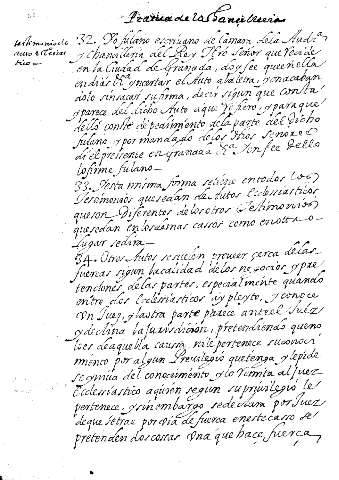 Practica de la Chanzilleria
testimonio de
auto eclesias
tico
32. Yo fulano escrivano de Camara de la Audª
y Chanzilleria del Rey Nro Señor que reside
en la Ciudad de Granada, doy fee que en ella
en dias &ª y insertar el Auto a la letra, y en acaban
dolo sin sacar su firma, decir segun que consta
y parece del dicho Auto a que me refiero, y para que
dello conste de pedimento de la parte del Dicho
fulano, y por mandado de los dhos Señores
di el presente en granada &ª En fee dello
lo firme fulano
33. Y esta misma forma se sigue en todos los
Testimonios que se dan de Autos Eclesiasticos
que son Diferentes de los otros Testimonios
que se dan en los demas cassos como en otro
lugar se dira
34. Otros Autos se suelen proveer cerca de las
fuerzas segun la calidad de los negocios y pre
tenciones de las partes, especialmente quando
entre dos Eclesiasticos ay pleyto, y conoce
un Juez, y la otra parte parece ante el Juez
y declina la Jurisdicion, pretendiendo que no
es de aquella causa ni le pertenece su conoci
miento por algun Privilegio que tenga, y le pide
se inhiva del conocimiento, y lo remita al Juez
Eclesiastico a quien segun su privilegio le
pertenece, y sin embargo se declara por Juez
de que se trae por via de fuerza en este caso se
pretenden dos cossas una que hace fuerza